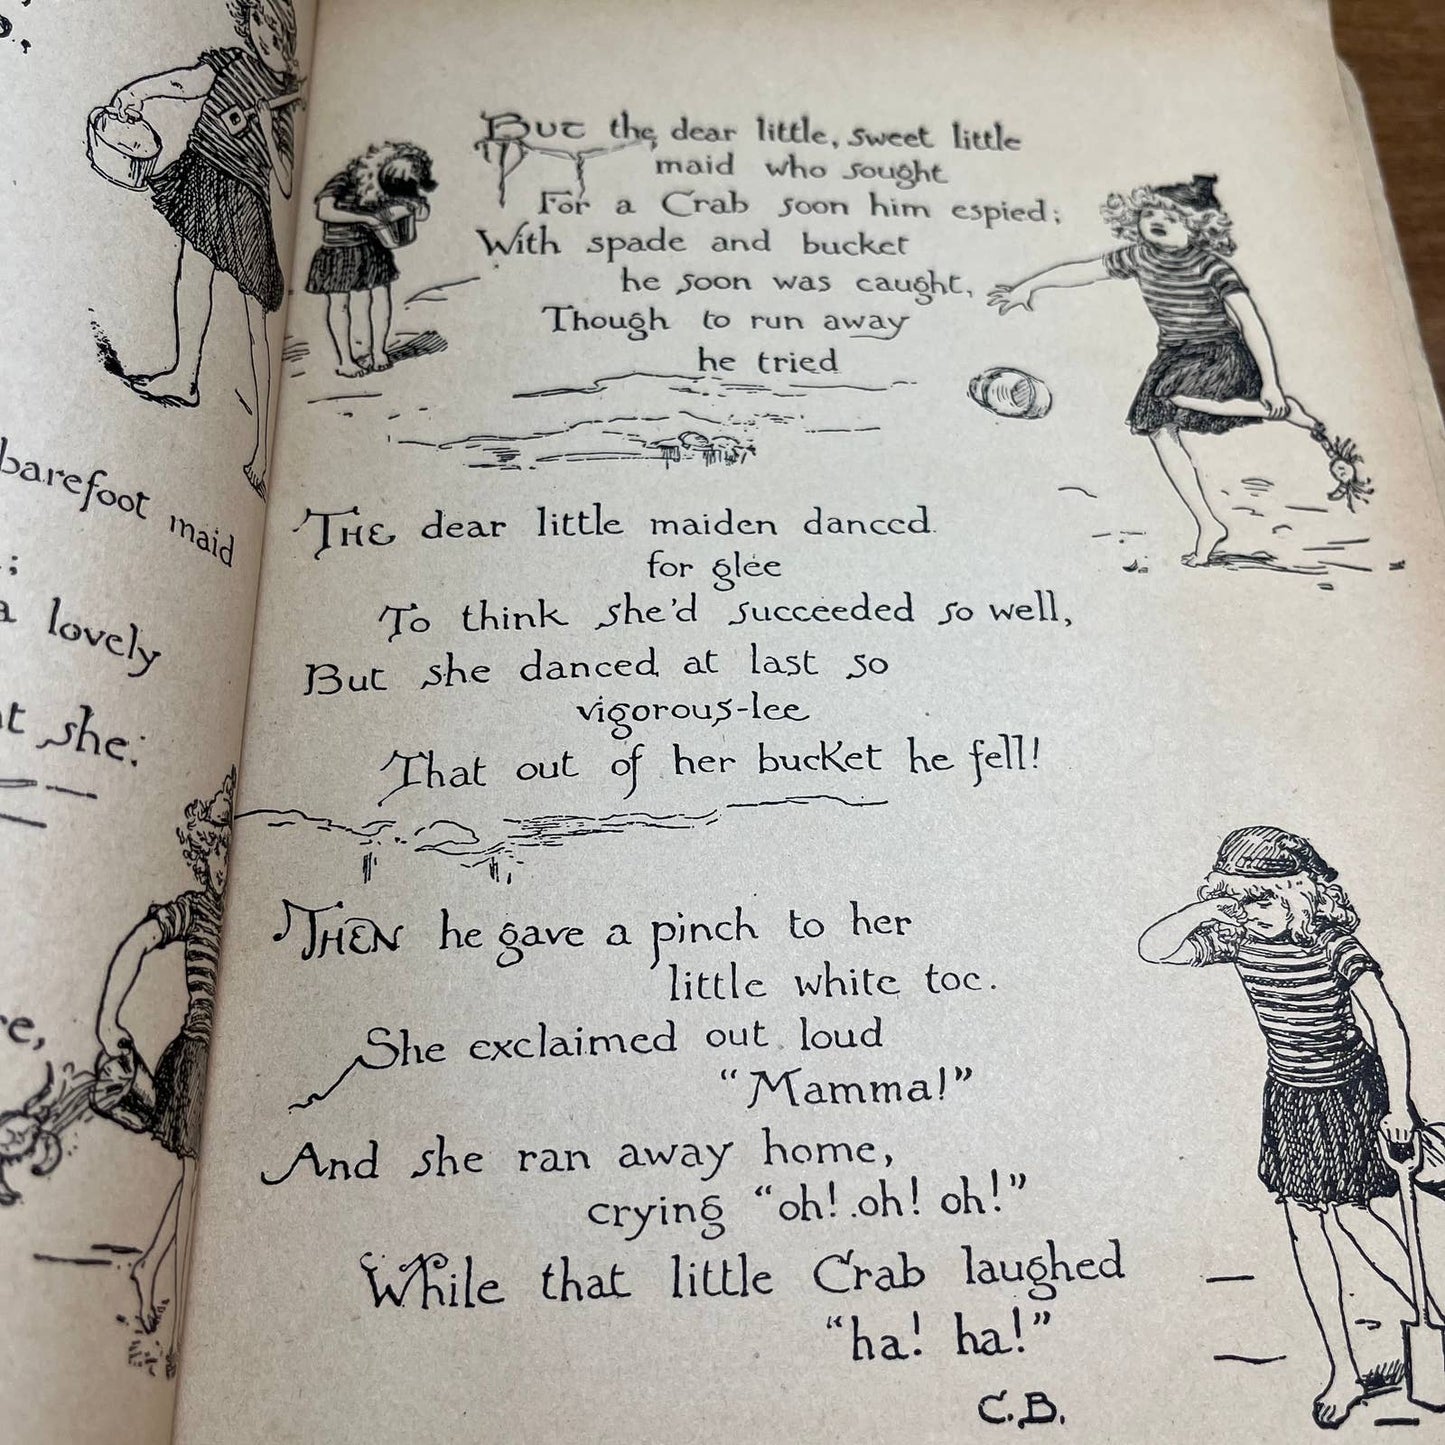 barefoot maid
a lovely
she:
But the dear little, sweet little
maid who sought
For a Crab soon him espied;
With spade and bucket
he soon was caught,
Though to run away
he tried
The dear little maiden danced
for glee
To think she'd succeeded so well,
But she danced at last so
vigorous-lee
That out of her bucket he fell!
Then he gave a pinch to her
little white toe.
She exclaimed out loud
"Mamma!"
And she ran away home,
crying "oh! oh! oh!"
While that little Crab laughed
"ha! ha!"
C.B.